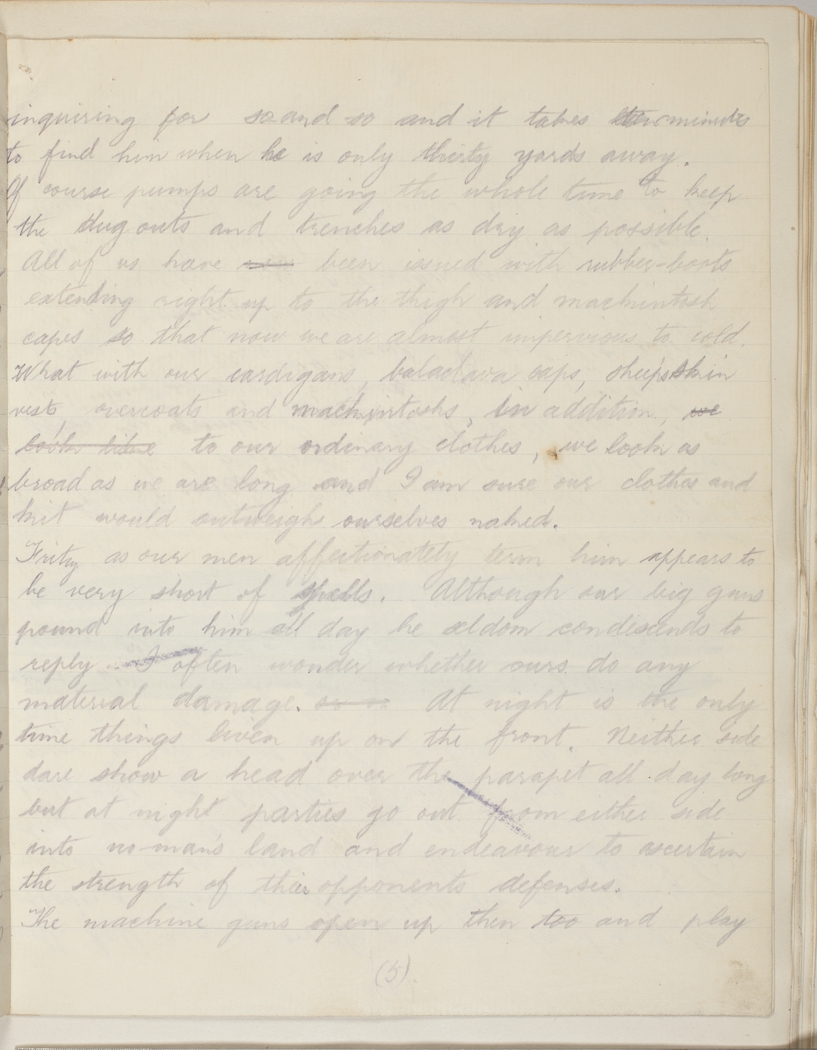 inquiring for so and so and it takes minutes
to find him when he is only thirty yards away.
Of course pumps are going the whole time to keep
the dug outs and trenches as dry as possible.
All of us have been issued with rubber-boots
extending right up to the thigh and machintosh
capes so that now we are almost impervious to cold.
What with our cardigans, balaclava caps, sheepskin
vests, overcoats and machintoshs, in addition, we
look like to our ordinary clothes, we look as
broad as we are long and I am sure our clothes and
kit would outweigh ourselves naked.
Fritz as our men affectionately term him appears to
be very short of shells. Although our big guns
pound into him all day he seldom condesends to
reply. I often wonder whether ours do any
material damage. At night is the only
time things liven up on the front. Neither side
dare show a head over the parapet all day long
but at night parties go out from either side
into no-man's land and endeavour to ascertain
the strength of their opponents defenses.
The machine guns open up then too and play
(5).